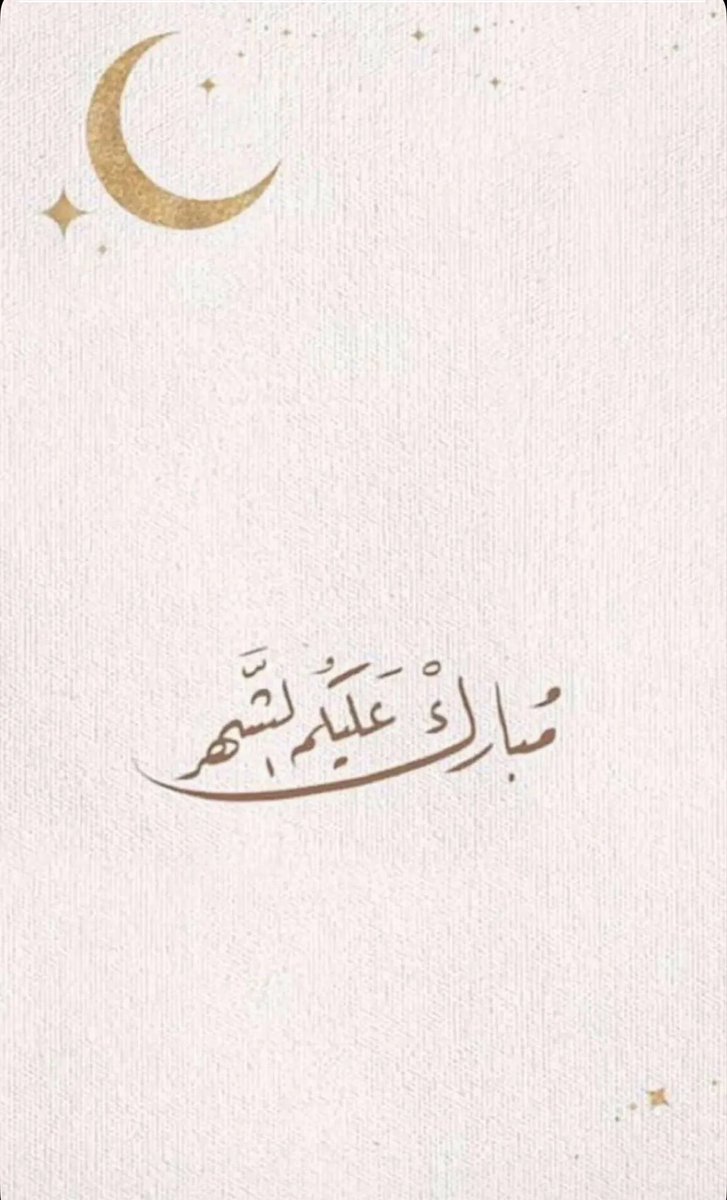 مُبارِكْ عَليَكُم الشَّهر